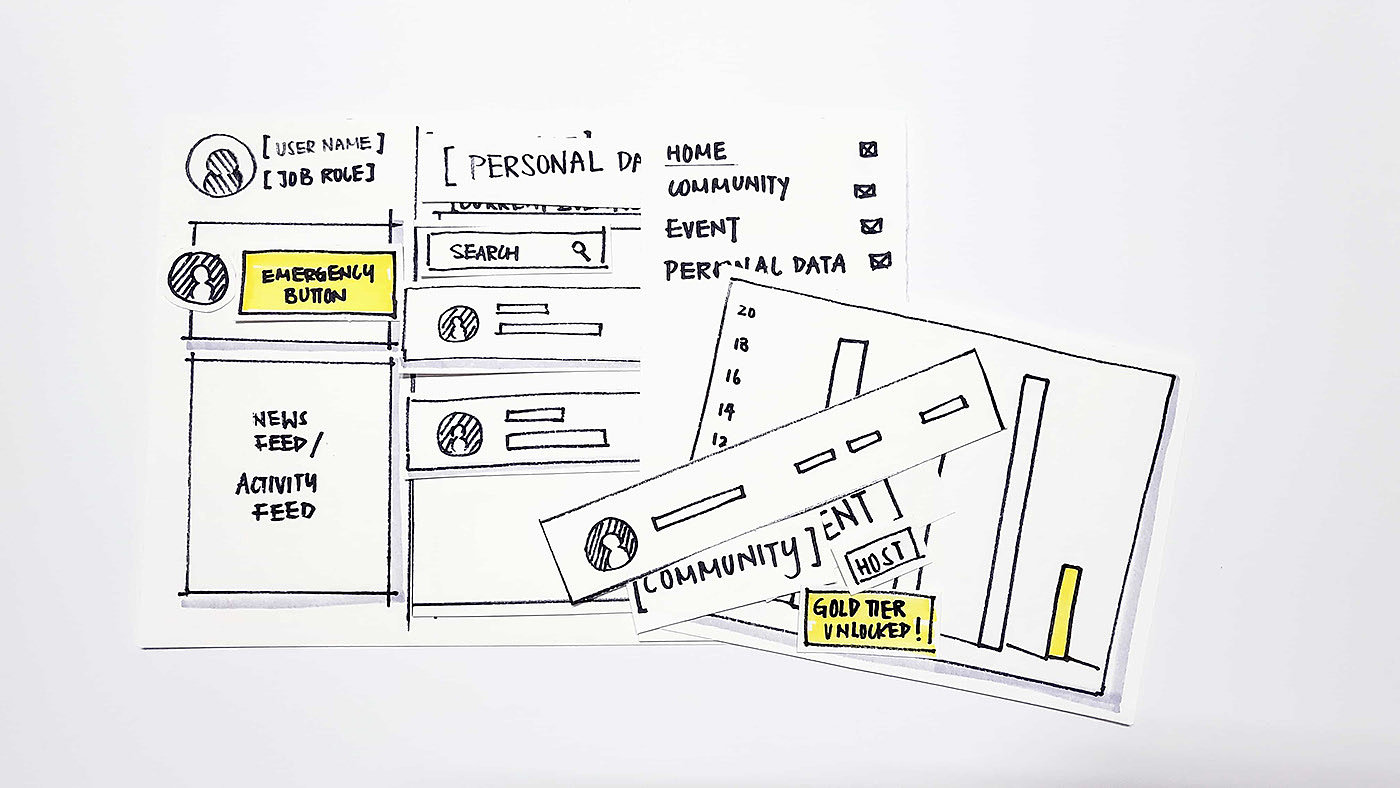 [USER NAME]
[JOB ROLE]
EMERGENCY
BUTTON
NEWS
FEED/
ACTIVITY
FEED
[PERSONAL DA
SEARCH
HOME
COMMUNITY
EVENT
DATA
20
18
16
14
12
ENT]
[COMMUNITY]
[HOST]
GOLD TIER
UNLOCKED!